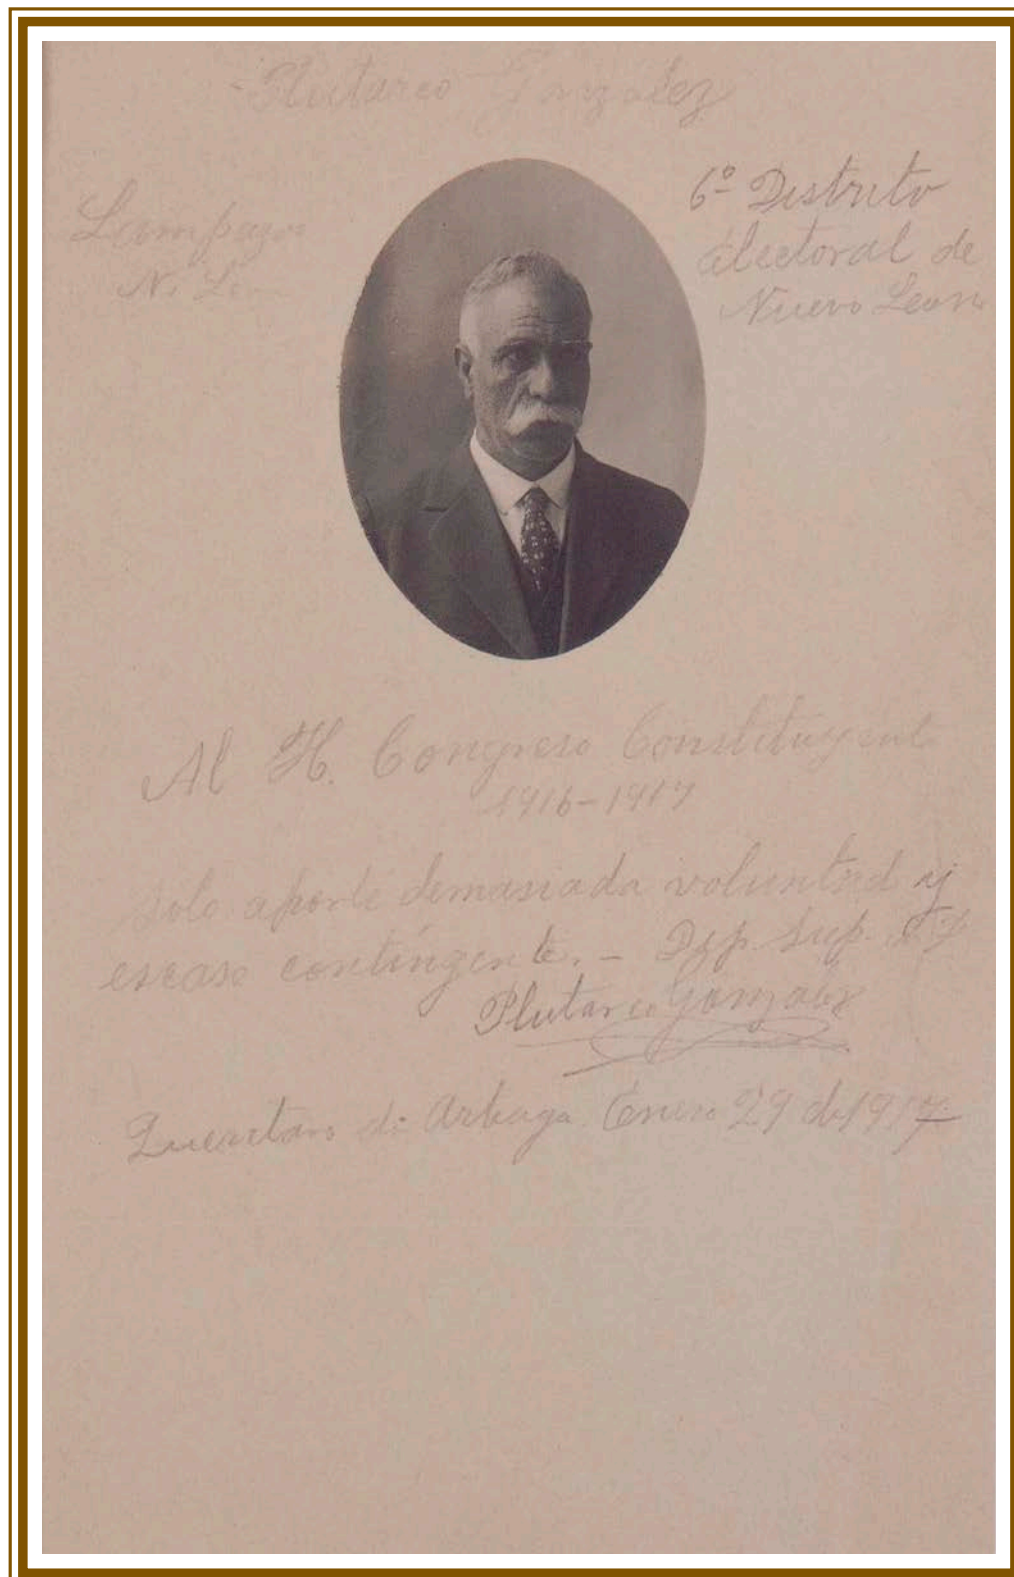 Plutarco González
Lampazos
N. León
6º Distrito
electoral de
Nuevo Leon
Al H. Congreso Constituyente
1916-1917
Solo aporté demasiada voluntad y
escaso contingente. - Dip. Sup.
Plutarco González
Queretaro de Arteaga Enero 29 de 1917